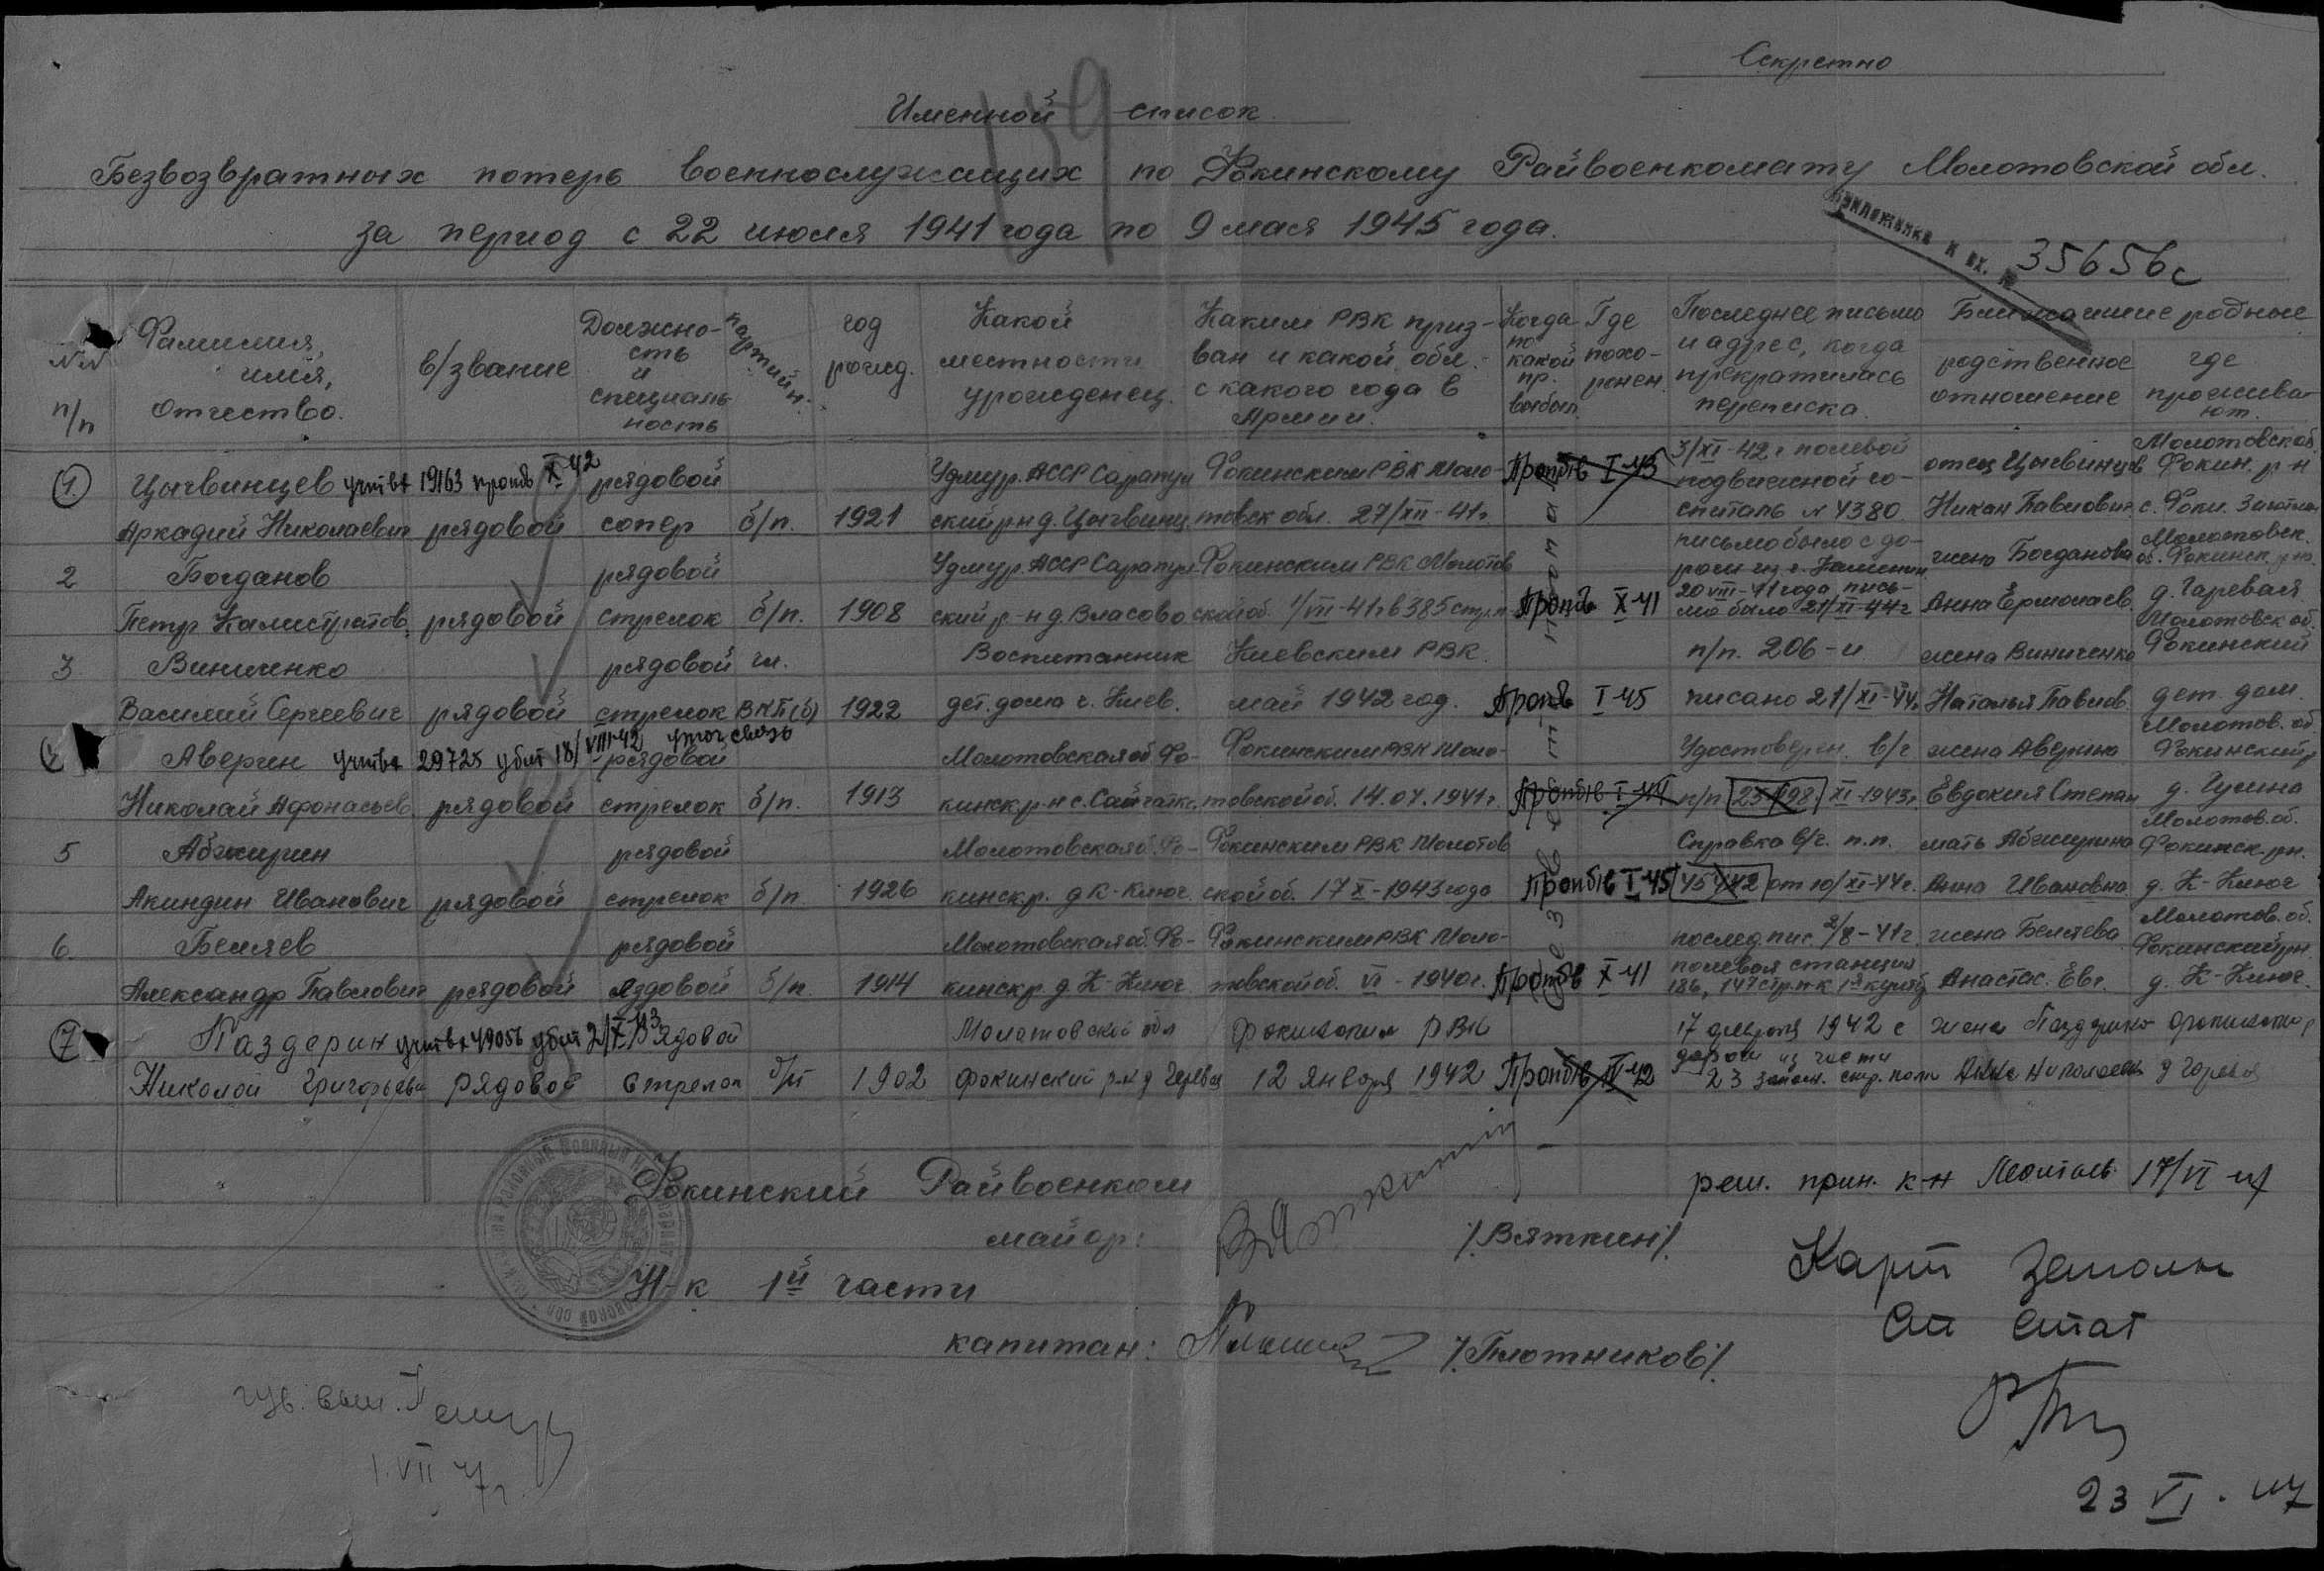 Секретно
Именной список
159
Безвозвратных потерь военнослужащих по Фокинскому Райвоенкомату Молотовской обл.
за период с 22 июня 1941 года по 9 мая 1945 года.
Приложение к вх. № 35656с
№№ п/п
Фамилия, имя, Отчество.
в/звание
Должность и специальность
партийн.
год рожд.
Какой местности урожденец.
Каким РВК призван и какой обл. с какого года в Армии.
Когда по какой пр. выбыл
Где похоронен
Последнее письмо и адрес, когда прекратилась переписка.
Ближайшие родные
родственное отношение
где проживают.
1. Цыгвинцев учтв 19163 пропв X 42 рядовой Удмур. АССР Сарапул Фокинским РВК Моло- Пропб/в I-43 3/XI-42 г полевой отец Цыгвинцев Молотовск об. Фокин. р-н
подвижной го-
Аркадий Николаевич рядовой сопер б/п. 1921 ский рн д. Цыгвинц товск обл. 27/XII-41г. спиталь № 4380 Никан Павлович с. Фоки
2 Богданов рядовой Удмур. АССР Сарапул Фокинским РВК Молотов письмо было с до- жена Богданова Молотовск. об. Фокинск. рн.
роги из г.
Петр Калистратов. рядовой стрелок б/п. 1908 ский р-н д. Власово ской об. 1/VII-41г в 385 стр.п. Пропб/в X-41 20 VIII-41 года пись- Анна Ермолаев. д. Гаревая
мо было 21/XI-44г
3 Виниченко рядовой чл. Воспитанник Киевским РВК. п/п. 206-и жена Виниченко Молотовск об. Фокинский
Василий Сергеевич рядовой стрелок ВКП(б) 1922 дет. дома г. Киев. май 1942 год. Проп/в I 45 писано 21/XI-44г. Наталья Павлов. дет. дом.
4 Аверин учтв 29725 убит 18/VIII-42 уточ связь рядовой Молотовская об. Фо- Фокинским РВК Моло- Удостоверен. в/ч жена Аверина Молотов. об. Фокинский р
Николай Афонасьев. рядовой стрелок б/п. 1913 кинск р-н с. Сайгатка. товской об. 14.07.1941г. Пропб/в I-44 п/п 23498. XI-1943г. Евдокия Степан д. Гусина
5 Абжирин рядовой Молотовская об. Фо- Фокинским РВК Молотов Справка в/ч. п.п. мать Абжирина Молотов. об. Фокинск. рн.
Акиндин Иванович рядовой стрелок б/п 1926 кинск р. д К-Ключ ской об. 17 X-1943 года Пропб/в I-45 45442 от 10/XI-44г. Анна Ивановна д. К-Ключ
6. Беляев рядовой Молотовская об. Фо- Фокинским РВК Моло- послед. пис. 2/8-41г жена Беляева Молотов. об. Фокинский рн.
полевая станция
Александр Павлович рядовой яздовой б/п. 1914 кинск р. д. К-Ключ товской об. VI-1940г. Пропб/в X-41 186, 147 стр. п-к Анастас. Евг. д. К-Ключ.
7 Паздерин учтв 49056 убит 2/X-43 Рядовой Молотовской обл Фокинским РВК 17 1942 с жена Паздерина Фокинский р
дороги из части
Николай Григорьеви рядовой стрелок б/п 1902 Фокинский р-н д Гаревая 12 января 1942 Пропб/в 42 23 запасн. стр. полк Анна Николаевн д Гаревая
Фокинский Райвоенком
майор: /Вяткин/.
Н-к 1й части
капитан: /Плотников/.
реш. прин. к-н 17/VI-47
Карт
23 VI. 47
1. VII 47г.